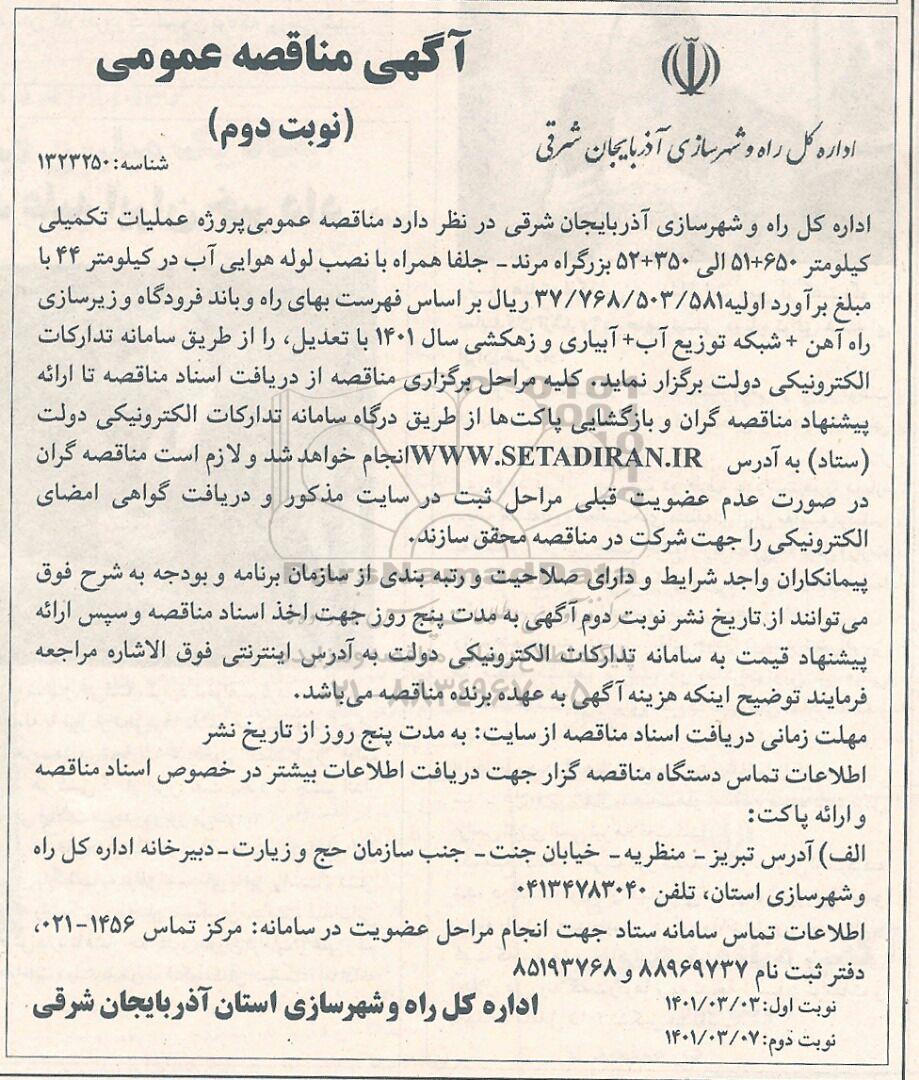 آگهی مناقصه عمومی
(نوبت دوم)
شناسه: ۱۳۲۳۲۵۰
اداره کل راه و شهرسازی آذربایجان شرقی
اداره کل راه و شهرسازی آذربایجان شرقی در نظر دارد مناقصه عمومی پروژه عملیات تکمیلی
کیلومتر ۶۵۰+۵۱ الی ۳۵۰+۵۲ بزرگراه مرند - جلفا همراه با نصب لوله هوایی آب در کیلومتر ۴۴ با
مبلغ برآورد اولیه۳۷/۷۶۸/۵۰۳/۵۸۱ ریال بر اساس فهرست بهای راه و باند فرودگاه و زیرسازی
راه آهن + شبکه توزیع آب+ آبیاری و زهکشی سال ۱۴۰۱ با تعدیل، را از طریق سامانه تدارکات
الکترونیکی دولت برگزار نماید. کلیه مراحل برگزاری مناقصه از دریافت اسناد مناقصه تا ارائه
پیشنهاد مناقصه گران و بازگشایی پاکت‌ها از طریق درگاه سامانه تدارکات الکترونیکی دولت
(ستاد) به آدرس WWW.SETADIRAN.IR انجام خواهد شد و لازم است مناقصه گران
در صورت عدم عضویت قبلی مراحل ثبت در سایت مذکور و دریافت گواهی امضای
الکترونیکی را جهت شرکت در مناقصه محقق سازند.
پیمانکاران واجد شرایط و دارای صلاحیت و رتبه بندی از سازمان برنامه و بودجه به شرح فوق
می‌توانند از تاریخ نشر نوبت دوم آگهی به مدت پنج روز جهت اخذ اسناد مناقصه و سپس ارائه
پیشنهاد قیمت به سامانه تدارکات الکترونیکی دولت به آدرس اینترنتی فوق الاشاره مراجعه
فرمایند توضیح اینکه هزینه آگهی به عهده برنده مناقصه می‌باشد.
مهلت زمانی دریافت اسناد مناقصه از سایت: به مدت پنج روز از تاریخ نشر
اطلاعات تماس دستگاه مناقصه گزار جهت دریافت اطلاعات بیشتر در خصوص اسناد مناقصه
و ارائه پاکت:
الف) آدرس تبریز - منظریه - خیابان جنت - جنب سازمان حج و زیارت - دبیرخانه اداره کل راه
و شهرسازی استان، تلفن ۰۴۱۳۴۷۸۳۰۴۰
اطلاعات تماس سامانه ستاد جهت انجام مراحل عضویت در سامانه: مرکز تماس ۱۴۵۶-۰۲۱،
دفتر ثبت نام ۸۸۹۶۹۷۳۷ و ۸۵۱۹۳۷۶۸
نوبت اول: ۱۴۰۱/۰۳/۰۳
نوبت دوم: ۱۴۰۱/۰۳/۰۷
اداره کل راه و شهرسازی استان آذربایجان شرقی
ParsNamadData